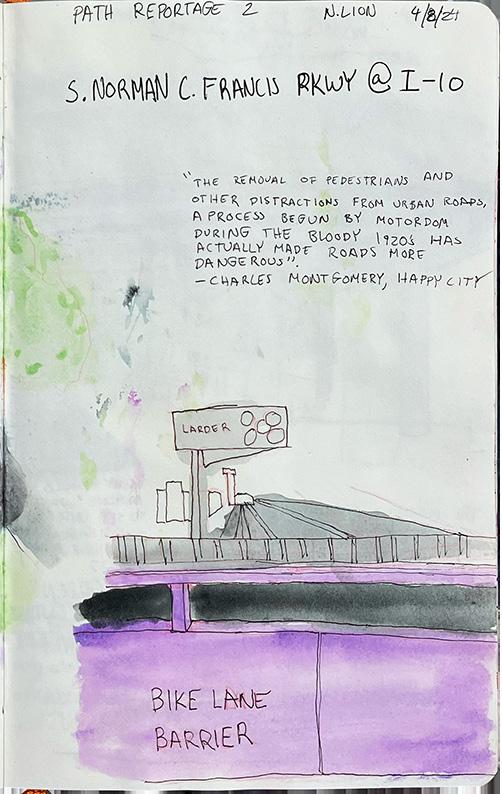 PATH REPORTAGE 2 N.LION 4/8/24
S. NORMAN C. FRANCIS PKWY @ I-10
"THE REMOVAL OF PEDESTRIANS AND
OTHER DISTRACTIONS FROM URBAN ROADS,
A PROCESS BEGUN BY MOTORDOM
DURING THE BLOODY 1920s HAS
ACTUALLY MADE ROADS MORE
DANGEROUS".
—CHARLES MONTGOMERY, HAPPY CITY
LARDER
BIKE LANE
BARRIER